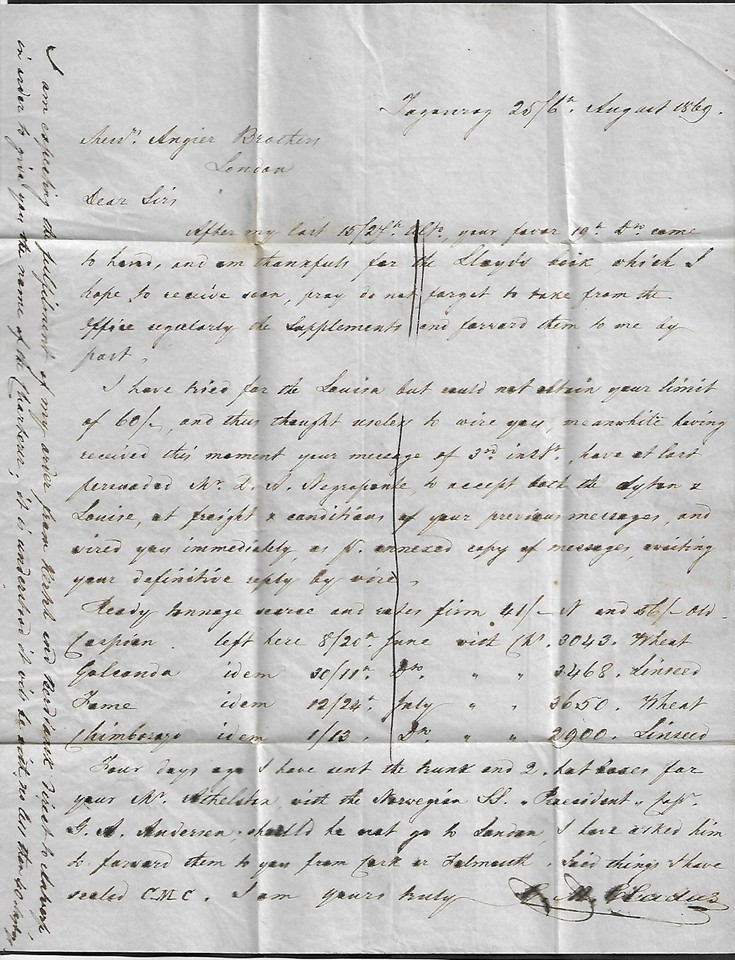 Taganrog 25/6th August 1869.
Messrs Angier Brothers
London
Dear Sirs
After my last 15/27th Ulto, your favor 19th Do came
to hand, and am thankfull for the Lloyd's book, which I
hope to receive soon, pray do not forget to take from the
Office regularly the Supplements and forward them to me by
post.
I have tried for the Louisa but could not obtain your limit
of 60/-, and thus thought useless to wire you, meanwhile having
received this moment your message of 3rd instt, have at last
persuaded Mr. D. A. Negroponte, to accept both the &
Louise, at freight & conditions of your previous messages, and
wired you immediately, as p. annexed copy of messages, awaiting
your definitive reply by wire.
Ready tonnage scarce and rates firm 41/- N and 56/- Old.
Caspian. left here 8/20th June with Ch. 3043. Wheat
Golconda idem 30/11th Do " " 3468. Linseed
Fame idem 12/24th July " " 3650. Wheat
Chimborazo idem 1/13. Do " " 2900. Linseed
Four days ago I have sent the trunk and 2 hat boxes for
your Mr. Athelstan with the Norwegian SS. "President" Capt.
G. A. Andersen, should he not go to London, I have asked him
to forward them to you from Cork or Falmouth. Said things I have
sealed C.M.C. I am yours truly
I am expecting the fulfilment of my order from Kertch and Berdiansk direct to
in order to give you the name of the Charterer; it is understood it will be with no less than